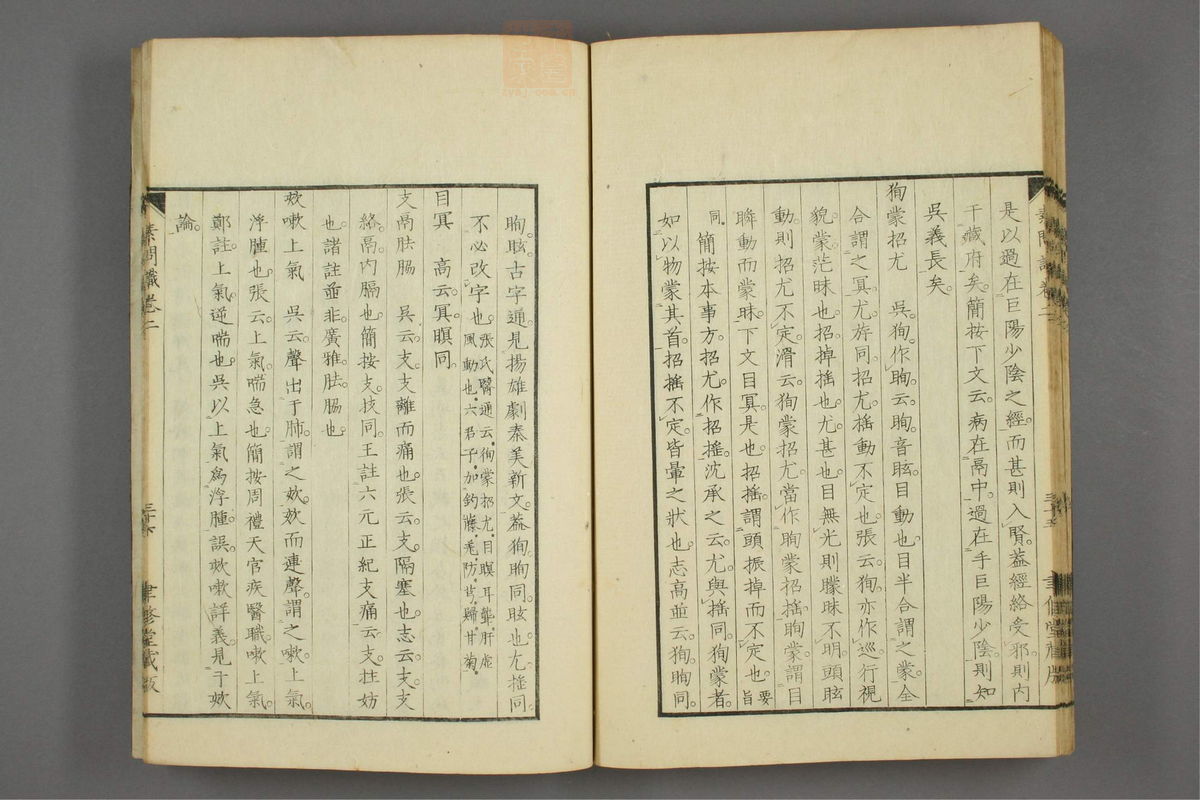 是以過在巨陽少陰之經而甚則入腎蓋經絡受邪則内
干藏府矣簡按下文云病在鬲中過在手巨陽少陰則知
吳義長矣
徇蒙招尤　吳徇作眴云眴音眩目動也目半合謂之蒙全
合謂之冥尤旍同招尤搖動不定也張云徇亦作巡行視
貌蒙茫昧也招掉搖也尤甚也目無光則矇昧不明頭眩
動則招尤不定滑云徇蒙招尤當作眴蒙招搖眴蒙謂目
眸動而蒙昧下文目冥是也招搖謂頭振掉而不定也要旨
同簡按本事方招尤作招搖沈承之云尤與搖同徇蒙者
如以物蒙其首招搖不定皆暈之狀也志高並云徇眴同
眴眩古字通見揚雄劇秦美新文蓋徇眴同眩也尤搖同
不必改字也張氏醫通云徇蒙招尤目瞑耳聾肝虛風動也六君子加鈎藤羌防芎歸甘菊
目冥　高云冥瞑同
支鬲胠脇　吳云支支離而痛也張云支隔塞也志云支支
絡鬲内膈也簡按支技同王註六元正紀支痛云支拄妨
也諸註並非廣雅胠脇也
欬嗽上氣　吳云聲出于肺謂之欬欬而連聲謂之嗽上氣
浮腫也張云上氣喘急也簡按周禮天官疾醫職嗽上氣
鄭註上氣逆喘也吳以上氣爲浮腫誤欬嗽詳義見于欬
論
素問識卷二
三十六
聿修堂藏版